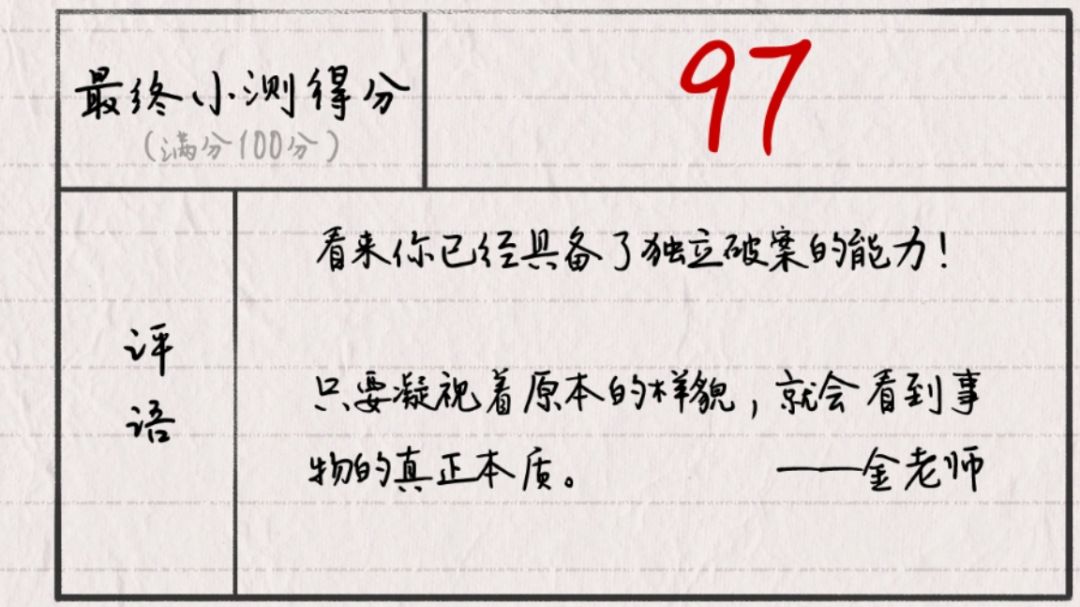 最终小测得分
(满分100分)
97
评
语
看来你已经具备了独立破案的能力!
只要凝视着原本的样貌,就会看到事
物的真正本质。 ——金老师